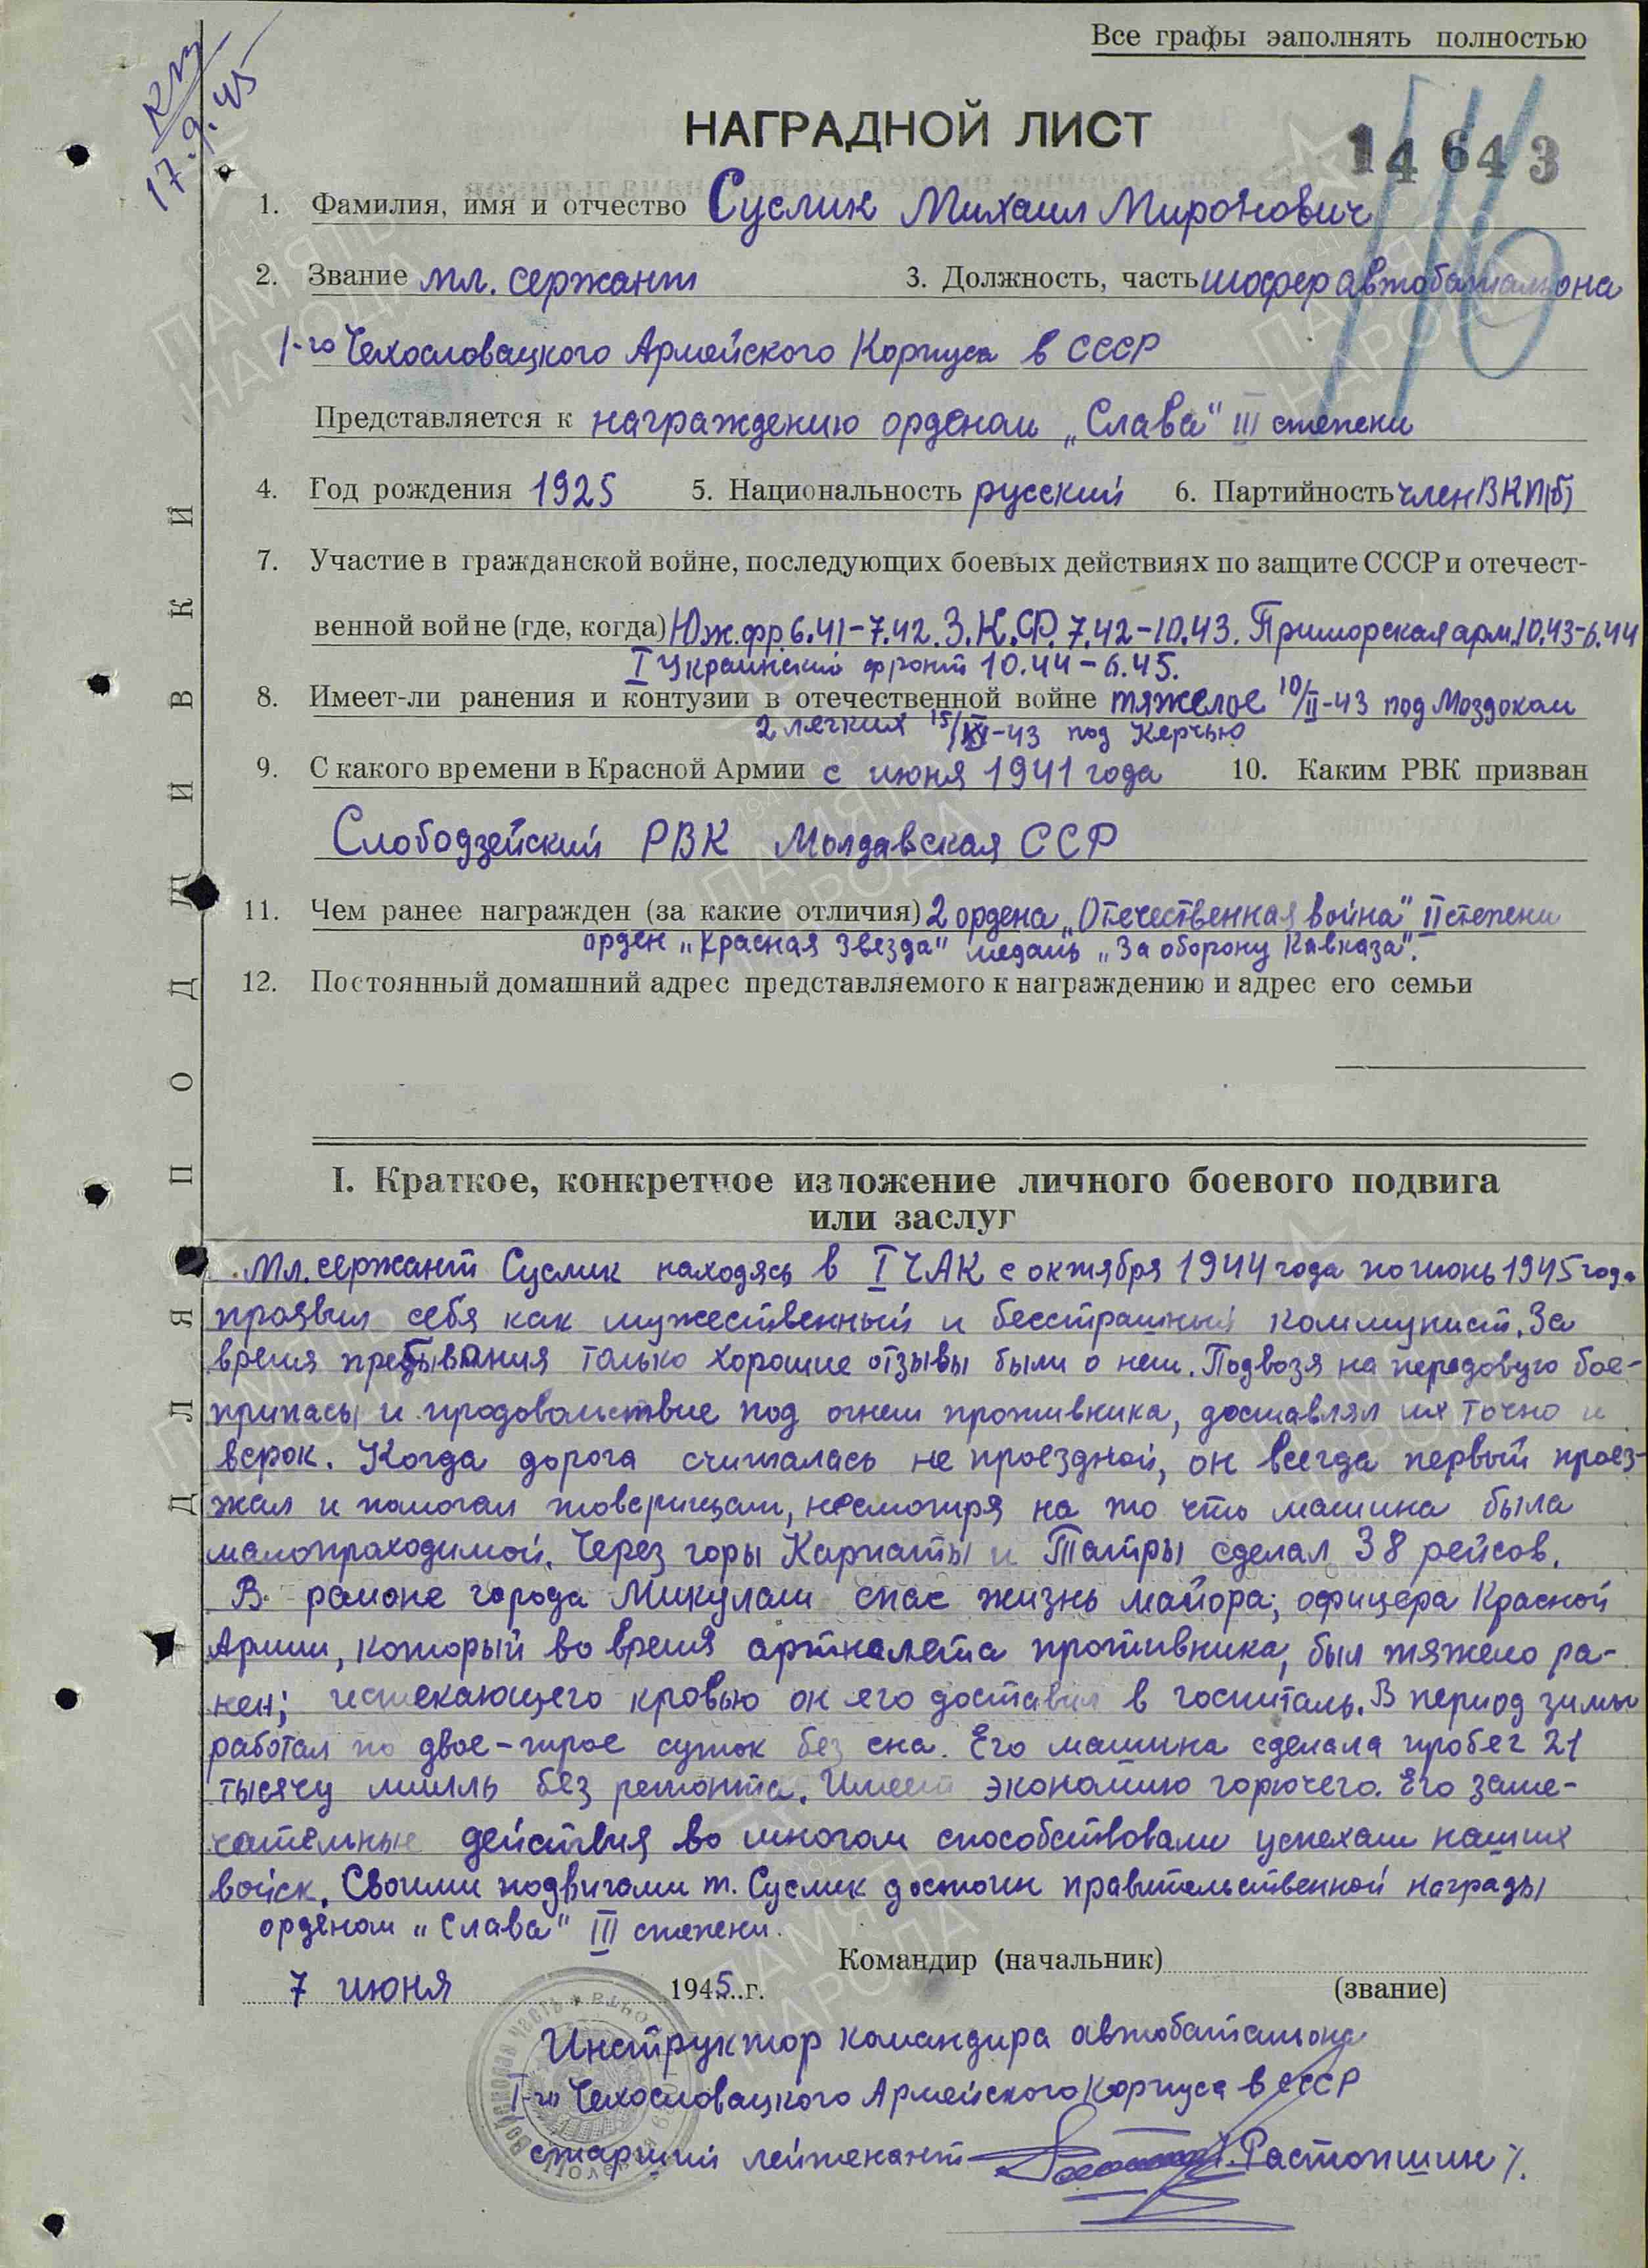 Все графы заполнять полностью
КВ
17.9.45
НАГРАДНОЙ ЛИСТ
14643
1. Фамилия, имя и отчество Суслик Михаил Миронович
2. Звание мл. сержант 3. Должность, часть шофер автобатальона
1-го Чехословацкого Армейского Корпуса в СССР
Представляется к награждению орденом „Слава" III степени
4. Год рождения 1925 5. Национальность русский 6. Партийность член ВКП(б)
7. Участие в гражданской войне, последующих боевых действиях по защите СССР и отечест-
венной войне (где, когда) Юж.фр 6.41-7.42. З.К.Ф. 7.42-10.43. Приморская арм. 10.43-6.44
I Украинский фронт 10.44-6.45.
8. Имеет-ли ранения и контузии в отечественной войне тяжелое 10/II-43 под Моздоком
2 легких 15/XI-43 под Керчью
9. С какого времени в Красной Армии с июня 1941 года 10. Каким РВК призван
Слободзейский РВК Молдавская ССР
11. Чем ранее награжден (за какие отличия) 2 ордена „Отечественная война" II степени
орден „Красная Звезда" медаль „За оборону Кавказа".
12. Постоянный домашний адрес представляемого к награждению и адрес его семьи
ДЛЯ ПОДШИВКИ
I. Краткое, конкретное изложение личного боевого подвига
или заслуг
Мл. сержант Суслик находясь в I ЧАК с октября 1944 года по июнь 1945 года
проявил себя как мужественный и бесстрашный коммунист. За
время пребывания только хорошие отзывы были о нем. Подвозя на передовую бое-
припасы и продовольствие под огнем противника, доставлял их точно и
всрок. Когда дорога считалась не проездной, он всегда первый проез-
жал и помогал товарищам, несмотря на то что машина была
малопроходимой. Через горы Карпаты и Татры сделал 38 рейсов.
В районе города Микулаш спас жизнь майора, офицера Красной
Армии, который во время артналета противника, был тяжело ра-
нен; истекающего кровью он его доставил в госпиталь. В период зимы
работал по двое-трое суток без сна. Его машина сделала пробег 21
тысячу миль без ремонта. Имеет экономию горючего. Его заме-
чательные действия во многом способствовали успехам наших
войск. Своими подвигами т. Суслик достоин правительственной награды
орденом „Слава" III степени.
Командир (начальник)
7 июня 1945 г.
(звание)
Инструктор командира автобатальона
I-го Чехословацкого Армейского Корпуса в СССР
старший лейтенант /Растопшин/.